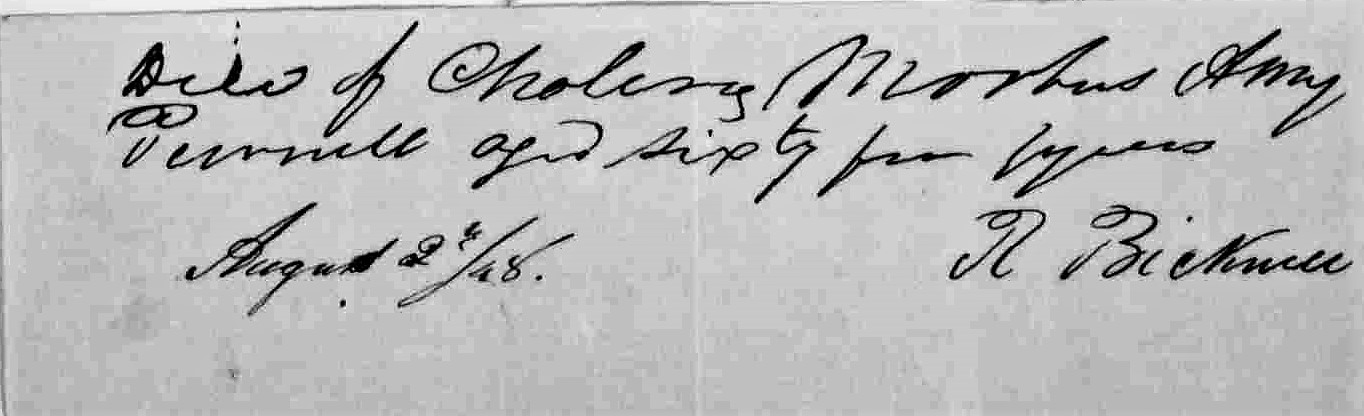 Died of Cholera Morbus Amy
Pennell aged sixty four years
August 2d/48.
R Bicknell